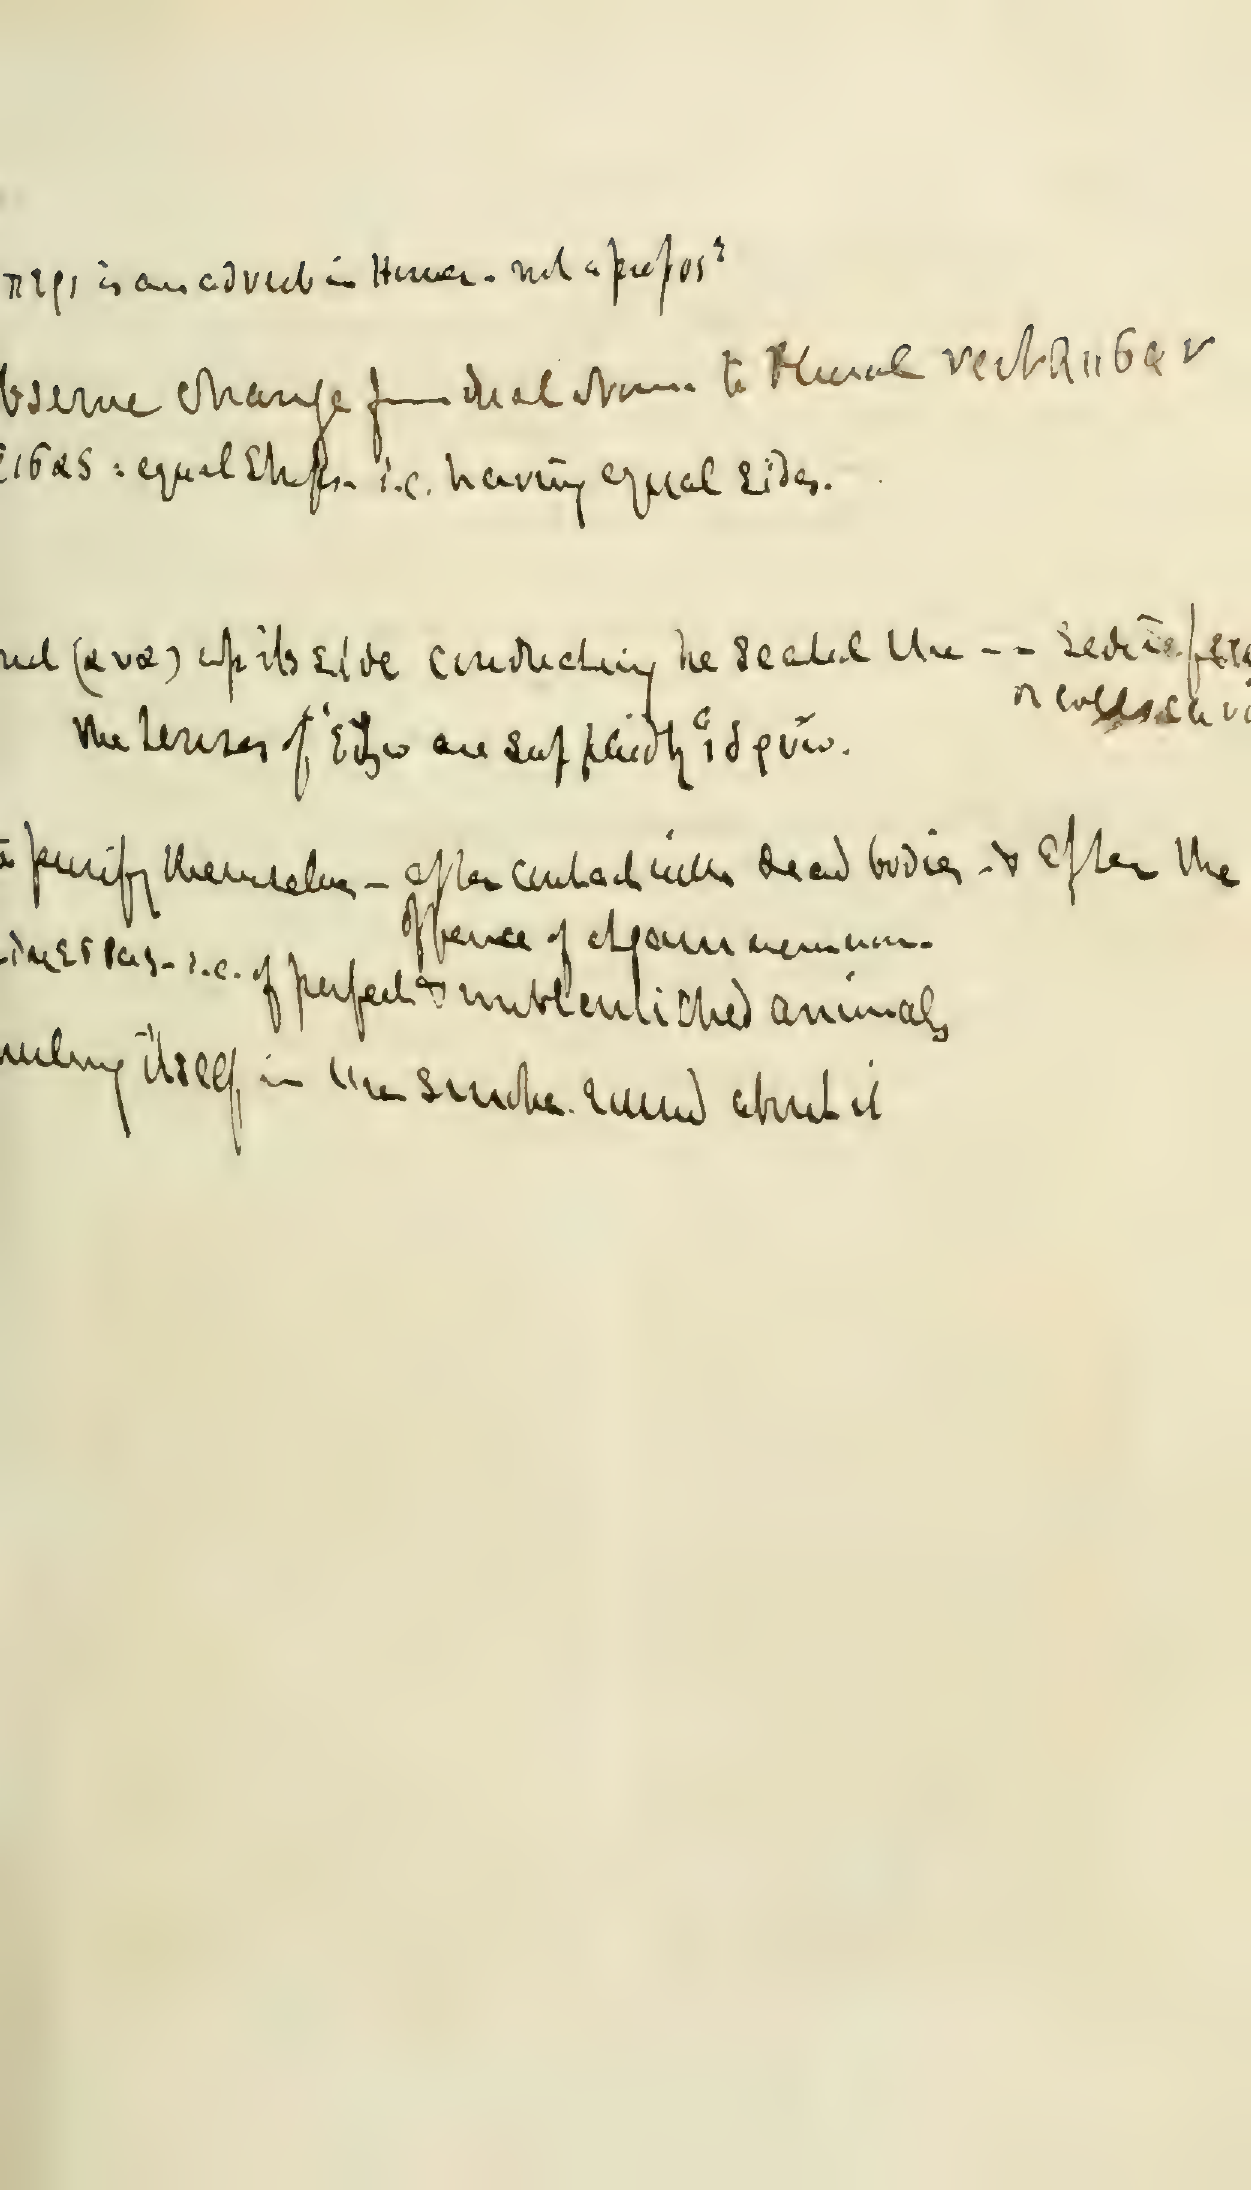 περι is an adverb in Homer. not a prepos
bserve change from dual Nom. to Plural verb
εισας = equal Shps. i.e. having equal sides.
(ανα) up its side conducting he seated the --
the tenses of are supplied by ιδρυω.
purify themselves - after contact with dead bodies & after the
offence of Agamemnon.
i.e. of perfect & unblemished animals
itself, in the smoke. round about it